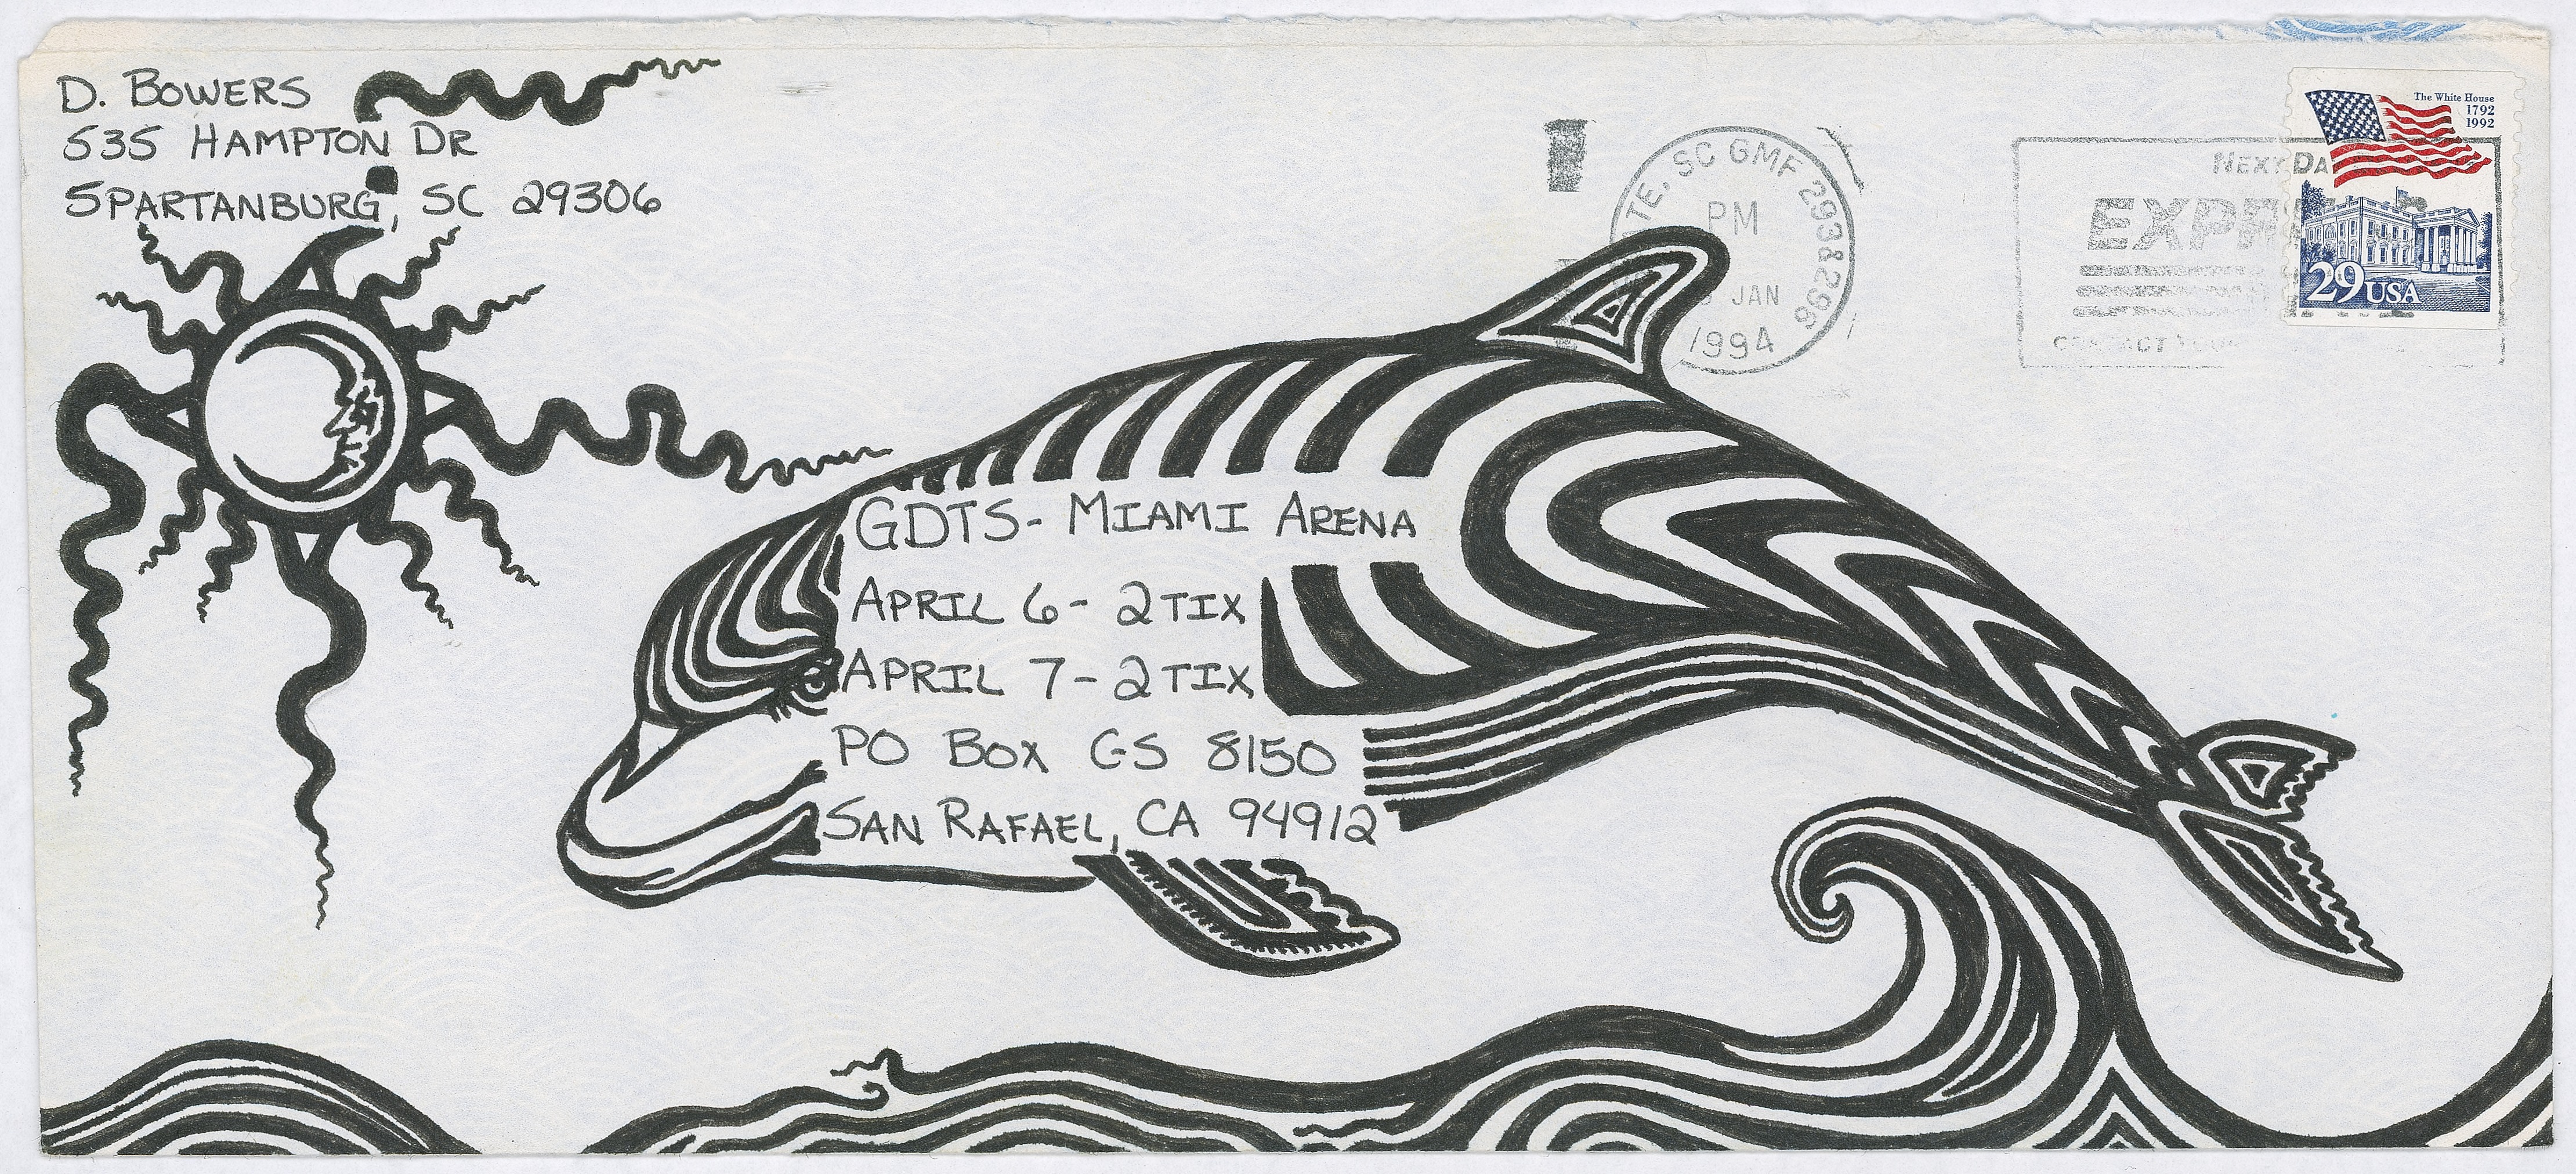 D. BOWERS
535 HAMPTON DR
SPARTANBURG, SC 29306
SC GMF 293&296
PM
JAN
1994
NEXT DA
The White House
1792
1992
29 USA
GDTS- MIAMI ARENA
APRIL 6 - 2 TIX
APRIL 7 - 2 TIX
PO BOX GS 8150
SAN RAFAEL, CA 94912